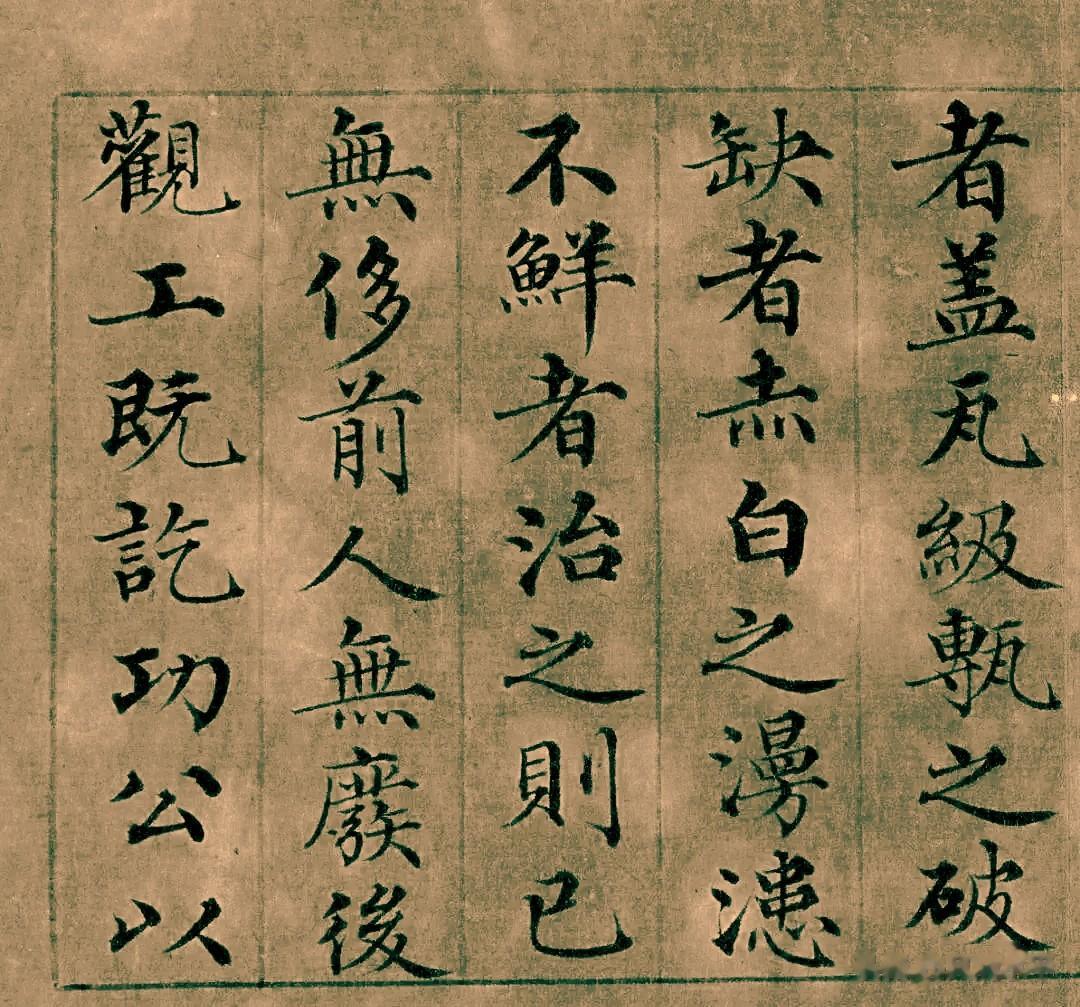 者蓋瓦級甎之破
缺者赤白之漫漶
不鮮者治之則已
無侈前人無廢後
觀工既訖功公以